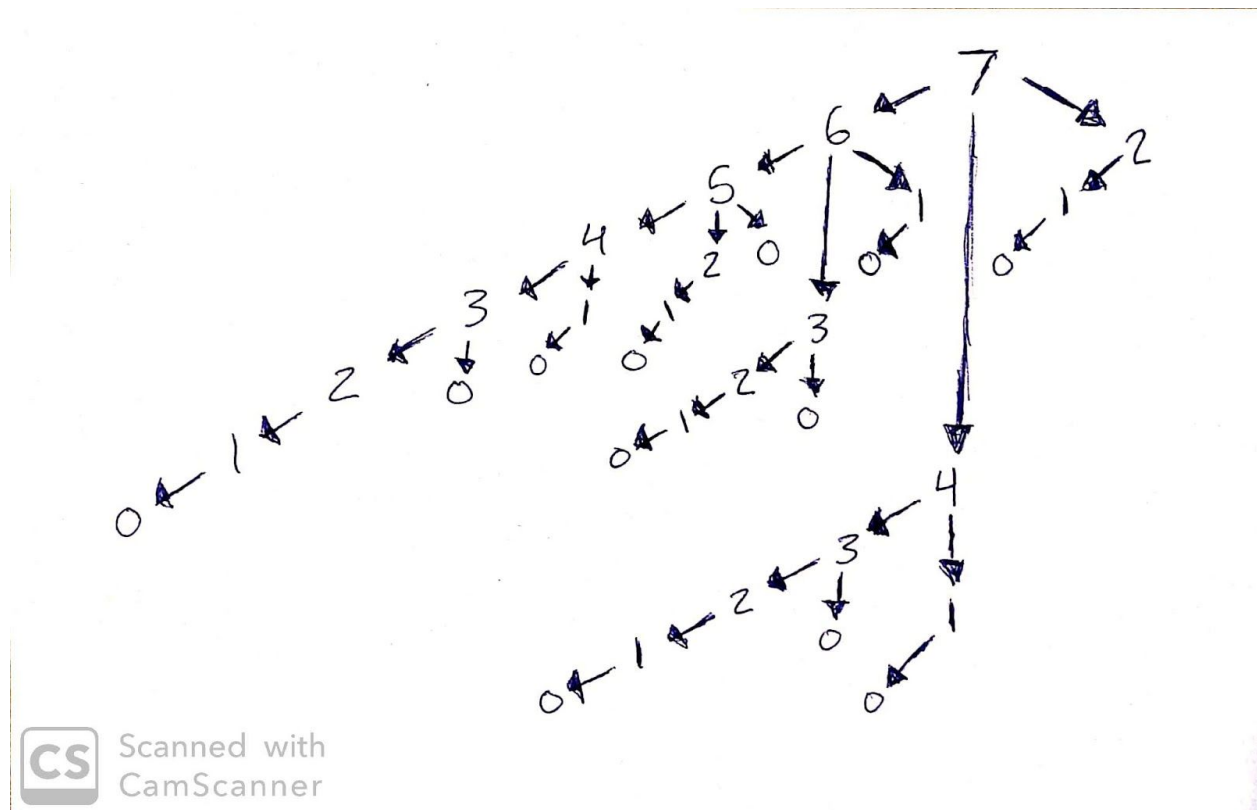 7
6 2
5 1 1
4 2 0 0 0
3 1 1 3
2 0 0 0 2 0
1 1 0
0 0
4
3
2 0 1
1
0 0
CS Scanned with
CamScanner